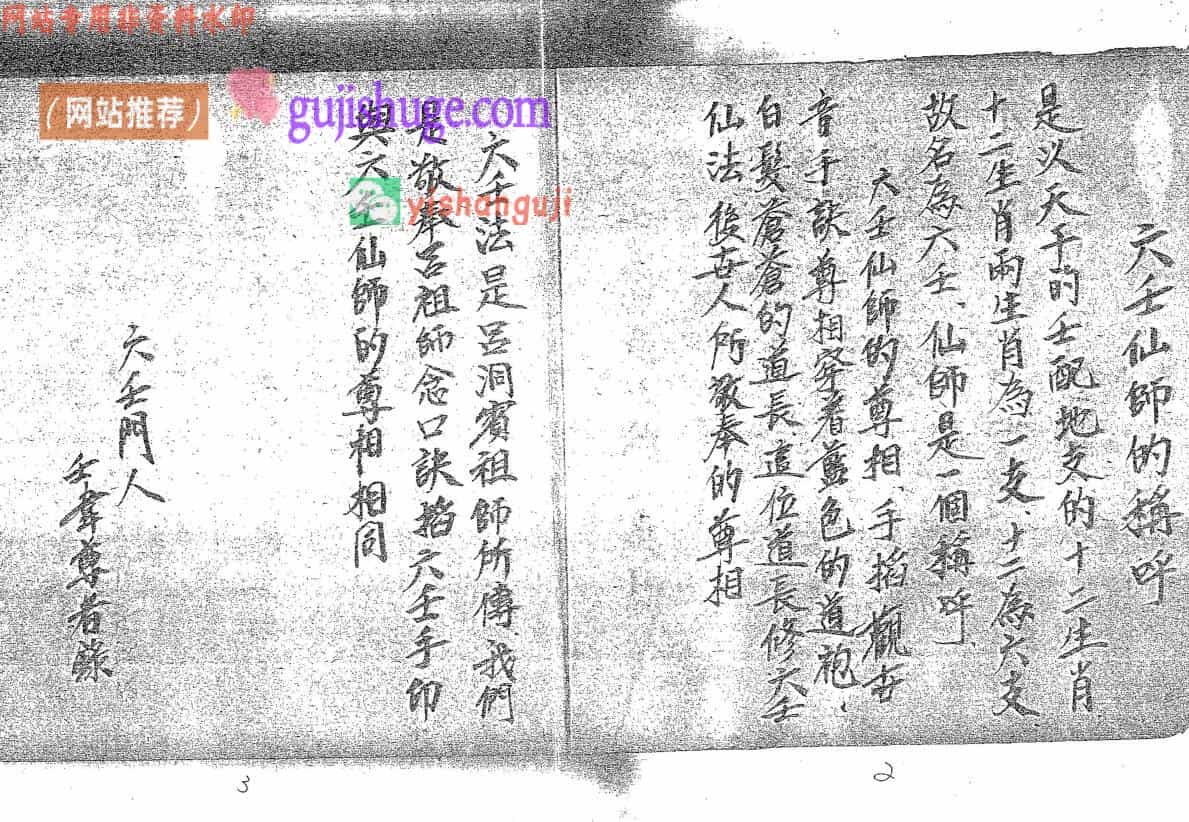 网站专用非资料水印
（网站推荐）
gujishuge.com
yishanguji
六壬仙師的稱呼
是以天干的壬配地支的十二生肖
十二生肖兩生肖為一支、十二為六支
故名為六壬、仙師是一個稱呼、
六壬仙師的尊相、手掐觀世
音手訣尊相穿着藍色的道袍、
白髮蒼蒼的道長這位道長修六壬
仙法後世人所敬奉的尊相
2
六壬法是呂洞賓祖師所傳、我們
是敬奉呂祖師念口訣掐六壬手印
與六壬仙師的尊相相同
六壬門人
壬韋尊者錄
3